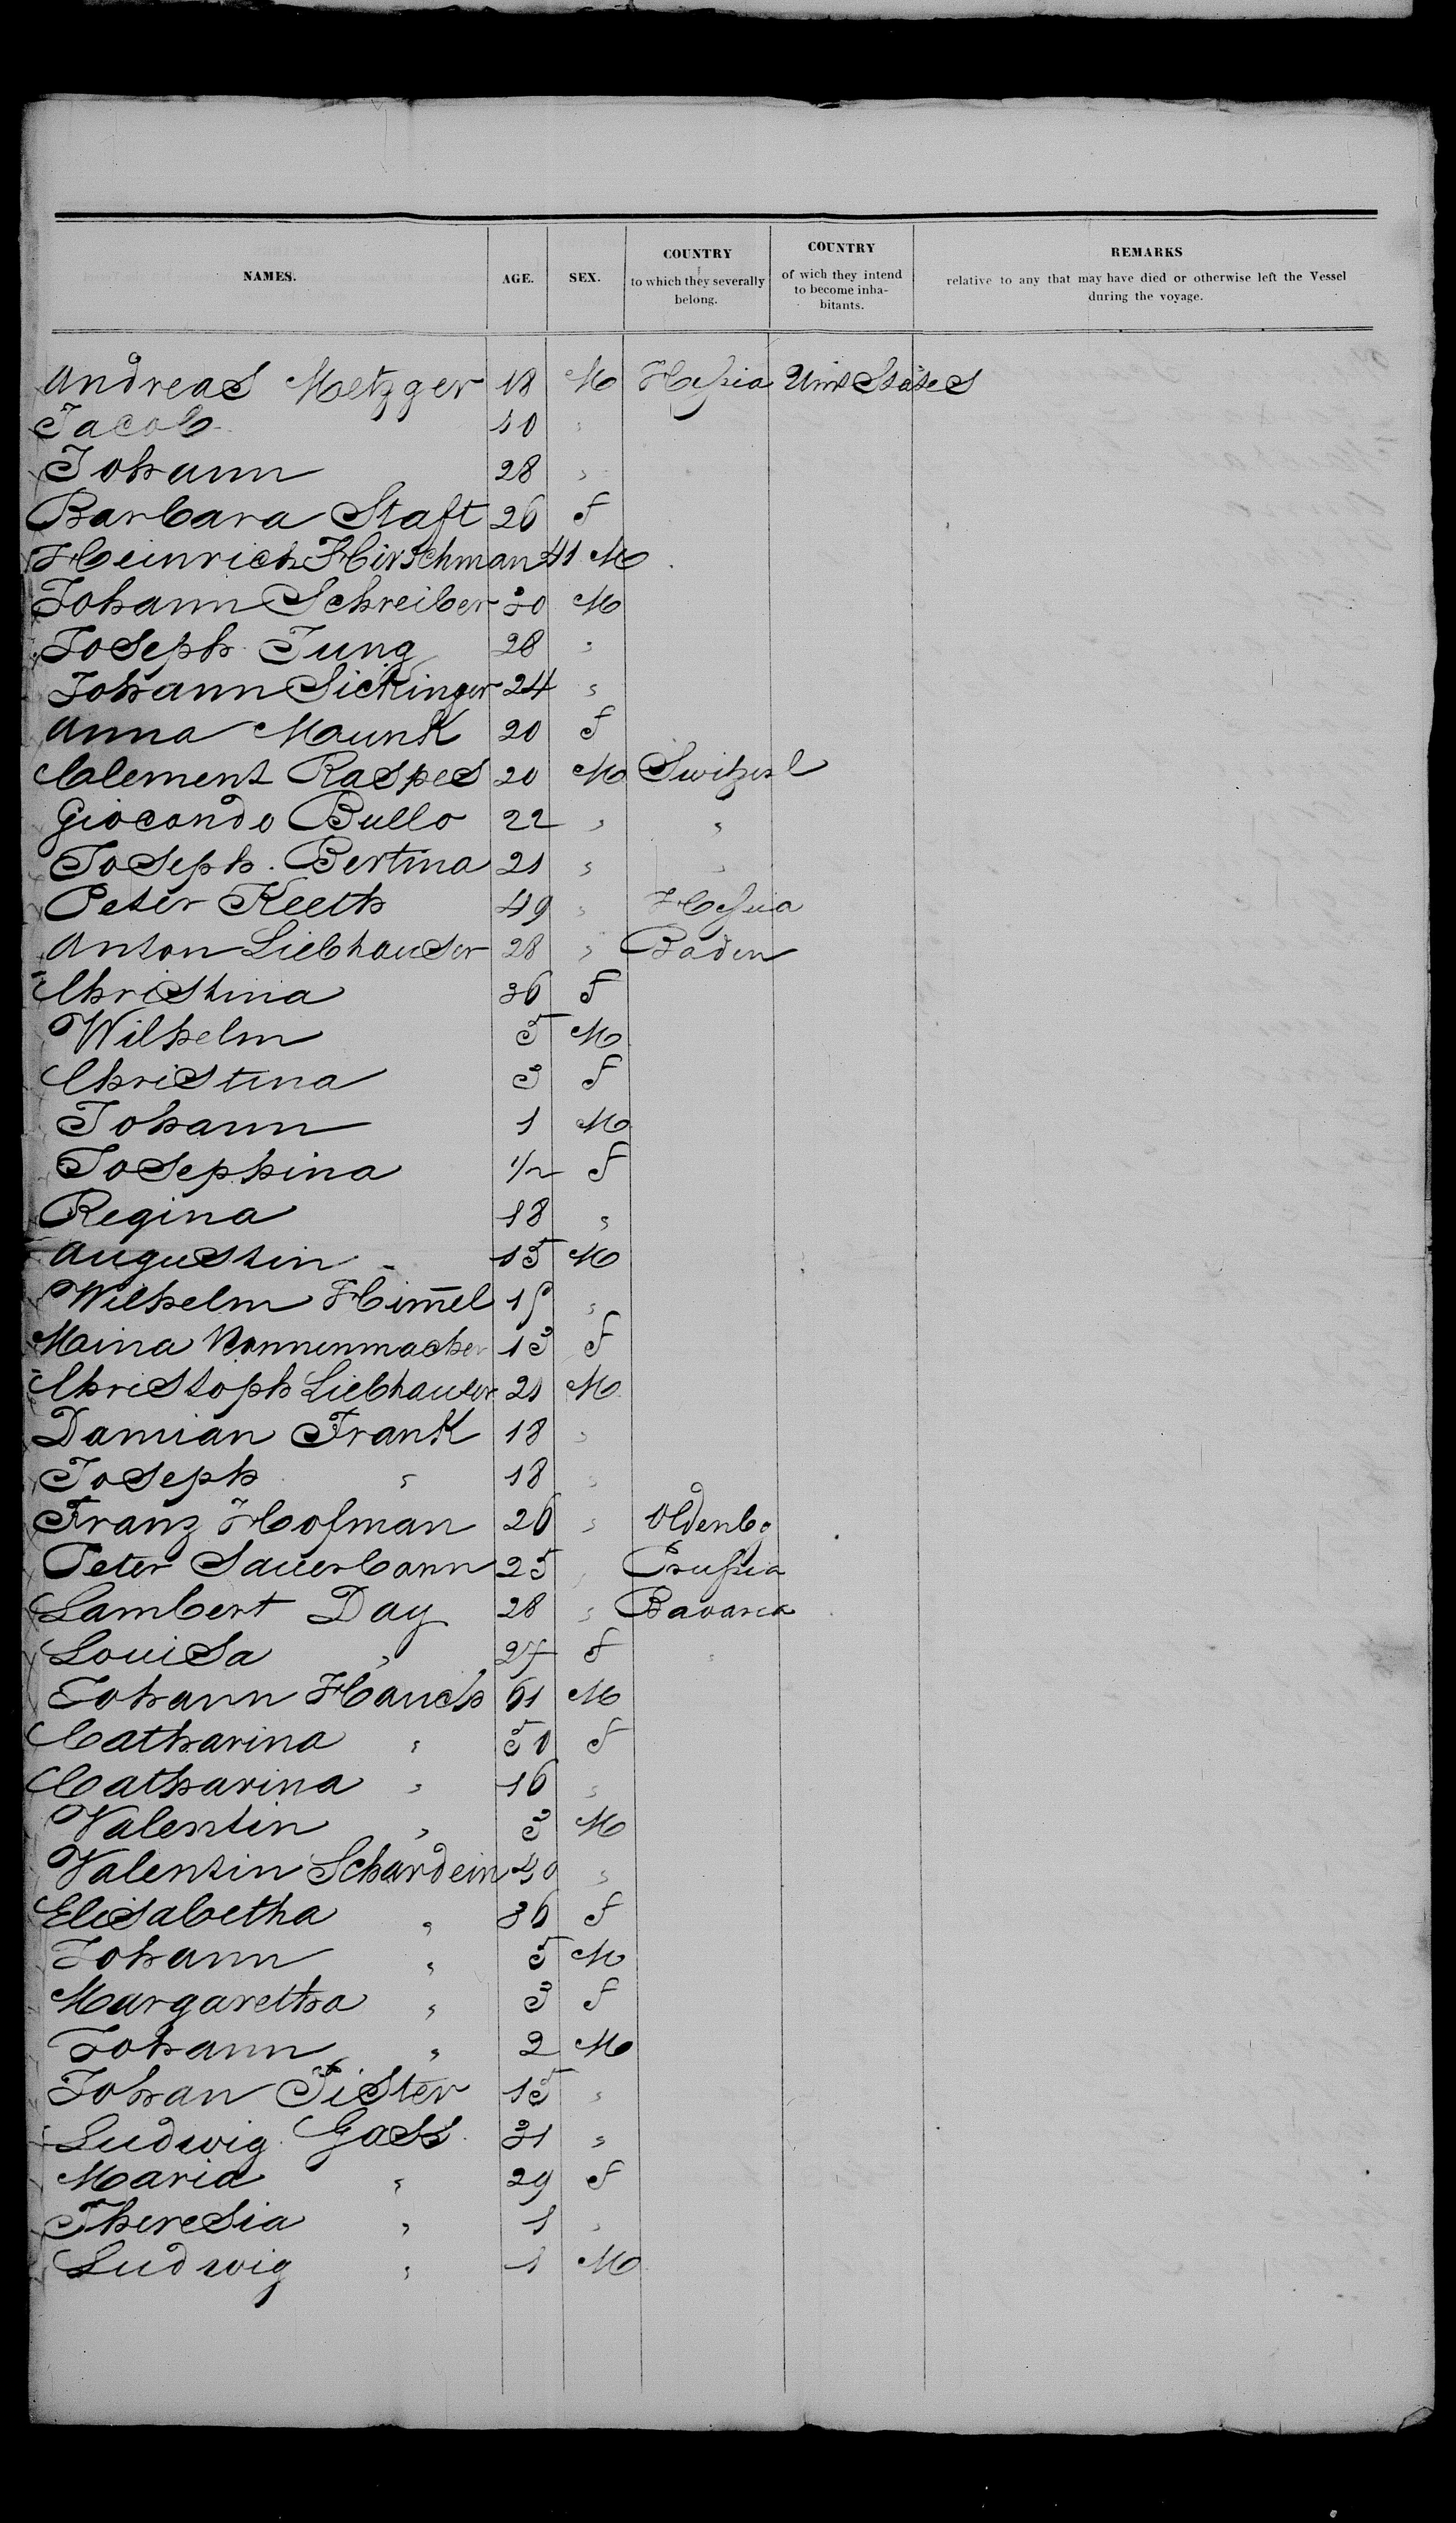 NAMES. AGE. SEX. COUNTRY to which they severally belong. COUNTRY of wich they intend to become inhabitants. REMARKS relative to any that may have died or otherwise left the Vessel during the voyage.
Andreas Metzger 18 M Hessia Unit States
Jacob 10 "
Johann 28 "
Barbara Staft 26 f
Heinrich Hirschman 41 M
Johann Schreiber 30 M
Joseph Jung 28 "
Johann Sickinger 24 "
Anna Maunk 20 f
Clement Raspes 20 M Switzerl
Giocondo Bullo 22 " "
Joseph. Bertina 21 " "
Peter Keeth 49 " Hessia
Anton Liebhauser 28 " Baden
Christina 36 f
Wilhelm 5 M
Christina 3 f
Johann 1 M
Josephina 1/2 f
Regina 18 "
Augustin 15 M
Wilhelm Him̄el 15 "
Maina Wonnenmacher 13 f
Christoph Liebhauser 21 M
Damian Frank 18 "
Joseph " 18 "
Franz Hofman 26 " Oldenbg
Peter Sauerborn 25 " Prussia
Lambert Day 28 " Bavaria
Louisa " 27 f "
Johann Hauch 61 M
Catharina " 50 f
Catharina " 16 "
Valentin " 3 M
Valentin Schardein 40 "
Elisabetha " 36 f
Johann " 5 M
Margaretha " 3 f
Johann " 2 M
Johan Pister 15 "
Ludwig Gass 31 "
Maria " 29 f
Theresia " 1 "
Ludwig " 1 M